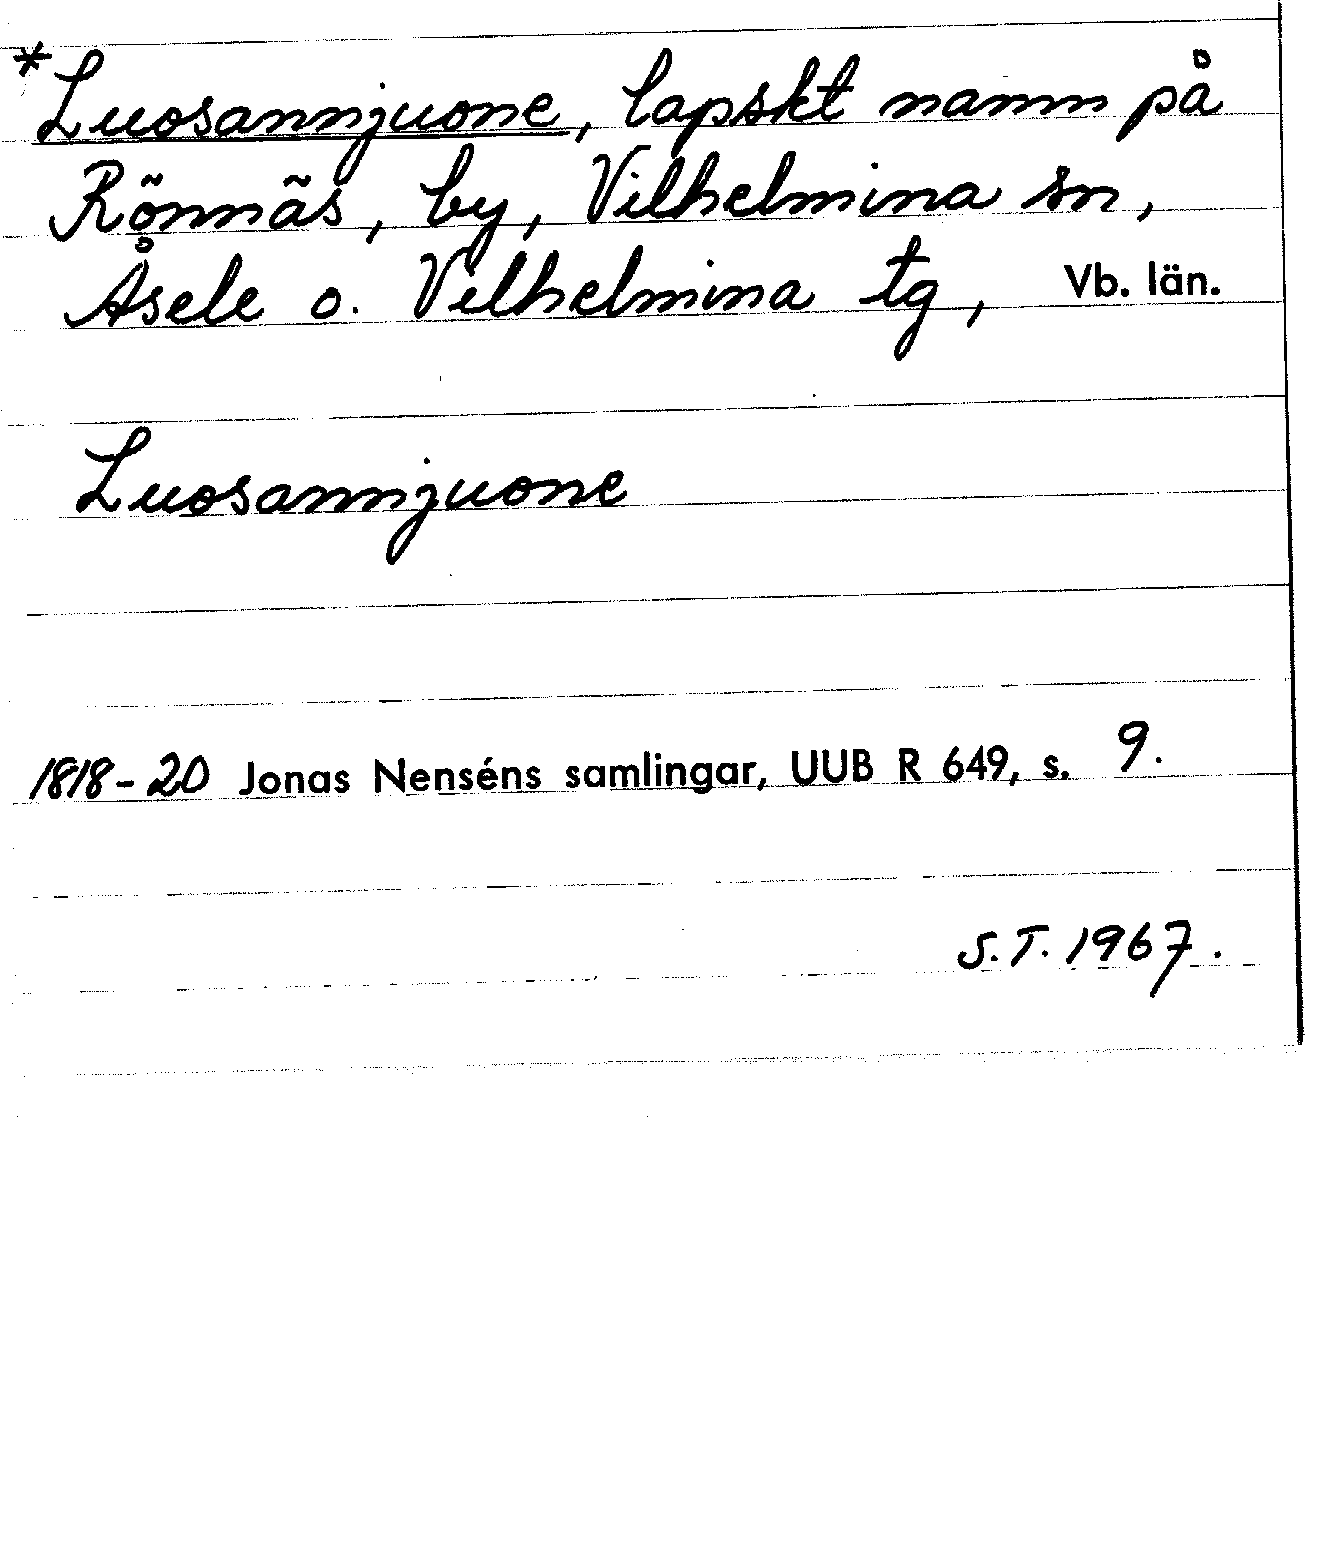 *Luosannjuone, lapskt namn på
Rönnäs, by, Vilhelmina sn,
Åsele o. Vilhelmina tg, Vb. län.
Luosannjuone
1818-20 Jonas Nenséns samlingar, UUB R 649, s. 9.
S.T. 1967.